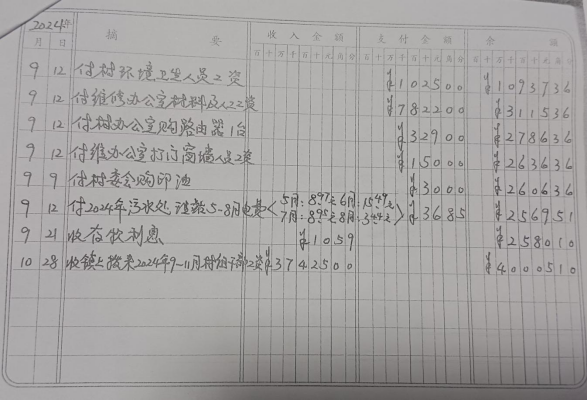 2024年 摘 要 收入金额 支付金额 余 额
月 日 百十万千百十元角分 百十万千百十元角分 百十万千百十元角分
9 12 付村环境卫生人员工资 ¥102500 ¥1093736
9 12 付维修办公室材料及人工工资 ¥782200 ¥311536
9 12 付村办公室购路由器1台 ¥32900 ¥278636
9 12 付维办公室打门窗墙人员工资 ¥15000 ¥263636
9 9 付村委会购印油 ¥3000 ¥260636
9 12 付2024年污水处理站5-8月电费〈5月:8.97元6月:15.49元 7月:8.95元8月:3.44元〉 ¥3685 ¥256951
9 21 收存款利息 ¥1059 ¥258010
10 28 收镇上拨来2024年9-11月村组干部工资 ¥3742500 ¥4000510